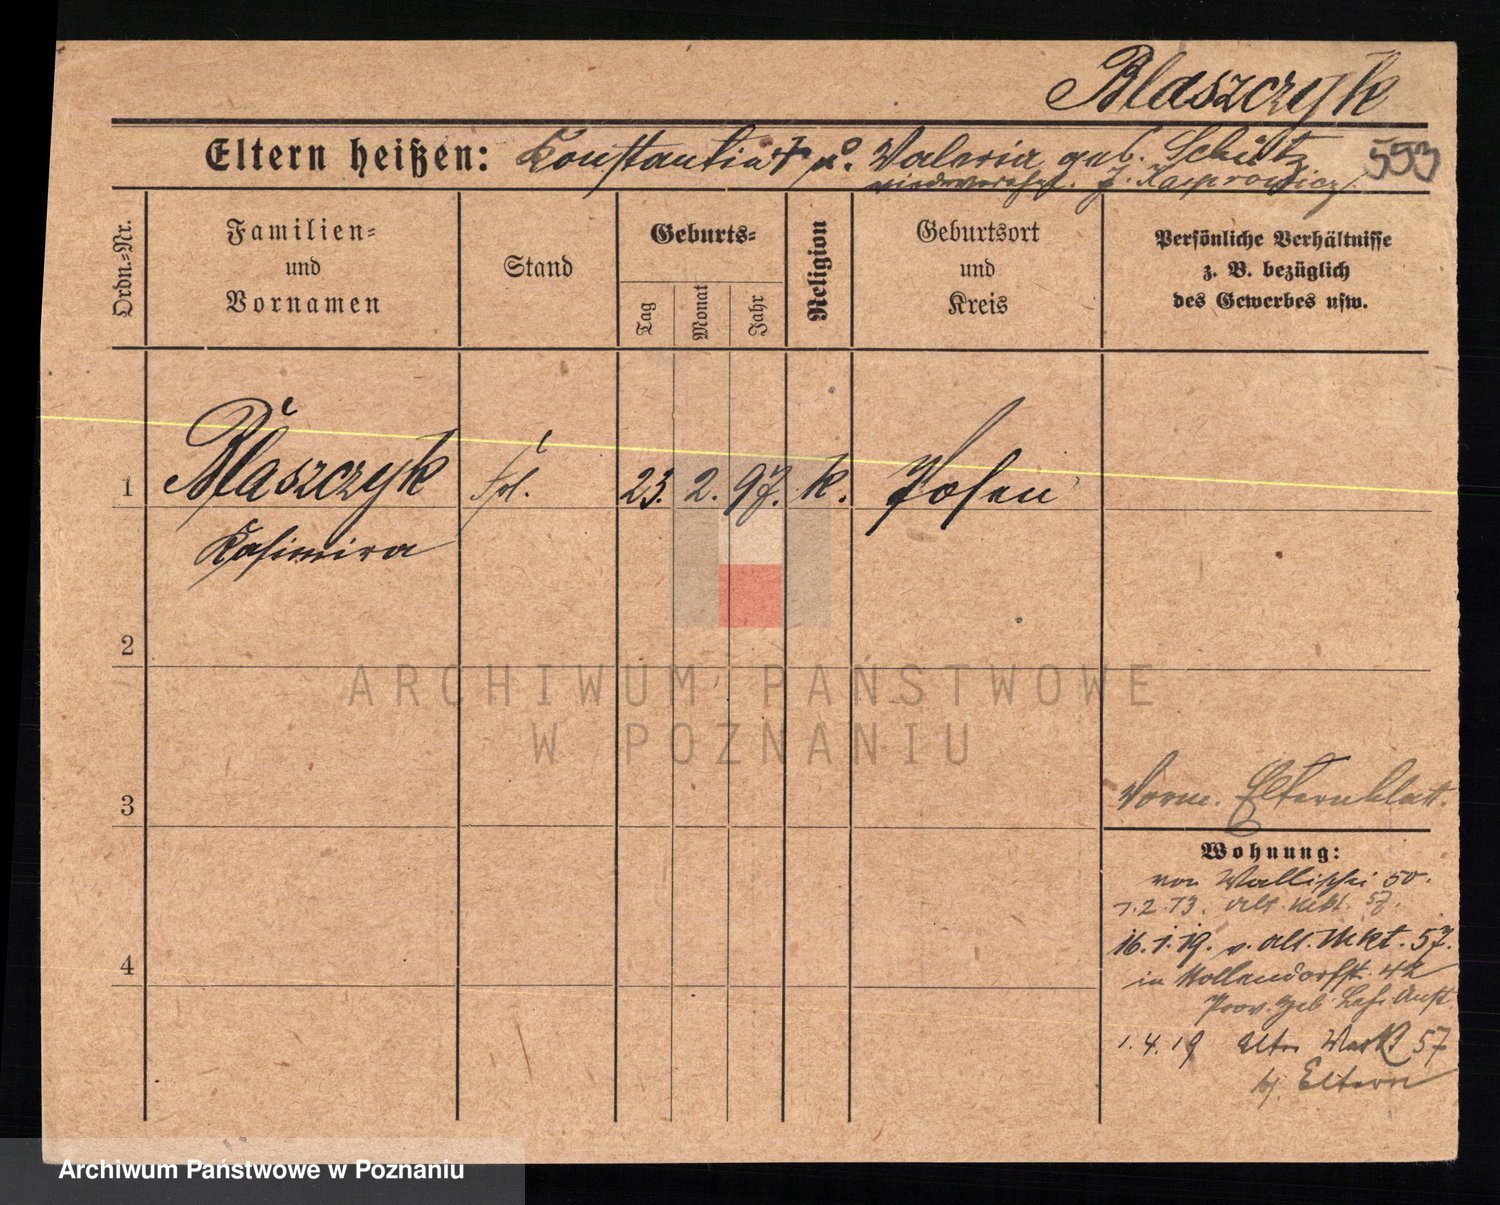 Blaszczyk
Eltern heißen: Konstantin † u. Valeria geb. Schütz 553
wiederverehel. Kasprowicz
Ordn.-Nr.
Familien-
und
Vornamen
Stand
Geburts-
Tag
Monat
Jahr
Religion
Geburtsort
und
Kreis
Persönliche Verhältnisse
z. B. bezüglich
des Gewerbes usw.
1 Blaszczyk Frl. 23. 2. 97. k. Posen
Kasimira
2
ARCHIWUM PAŃSTWOWE
W POZNANIU
3
Vorm. Elternblatt.
Wohnung:
von Wallischei 50.
1.2.13. Alt. Mkt. 57.
16.1.19. v. Alt. Mkt. 57.
in Hollandorfstr. 42
Prov. Heb. Lehr Anst
4
1.4.19 Alter Markt 57
bj. Eltern
Archiwum Państwowe w Poznaniu